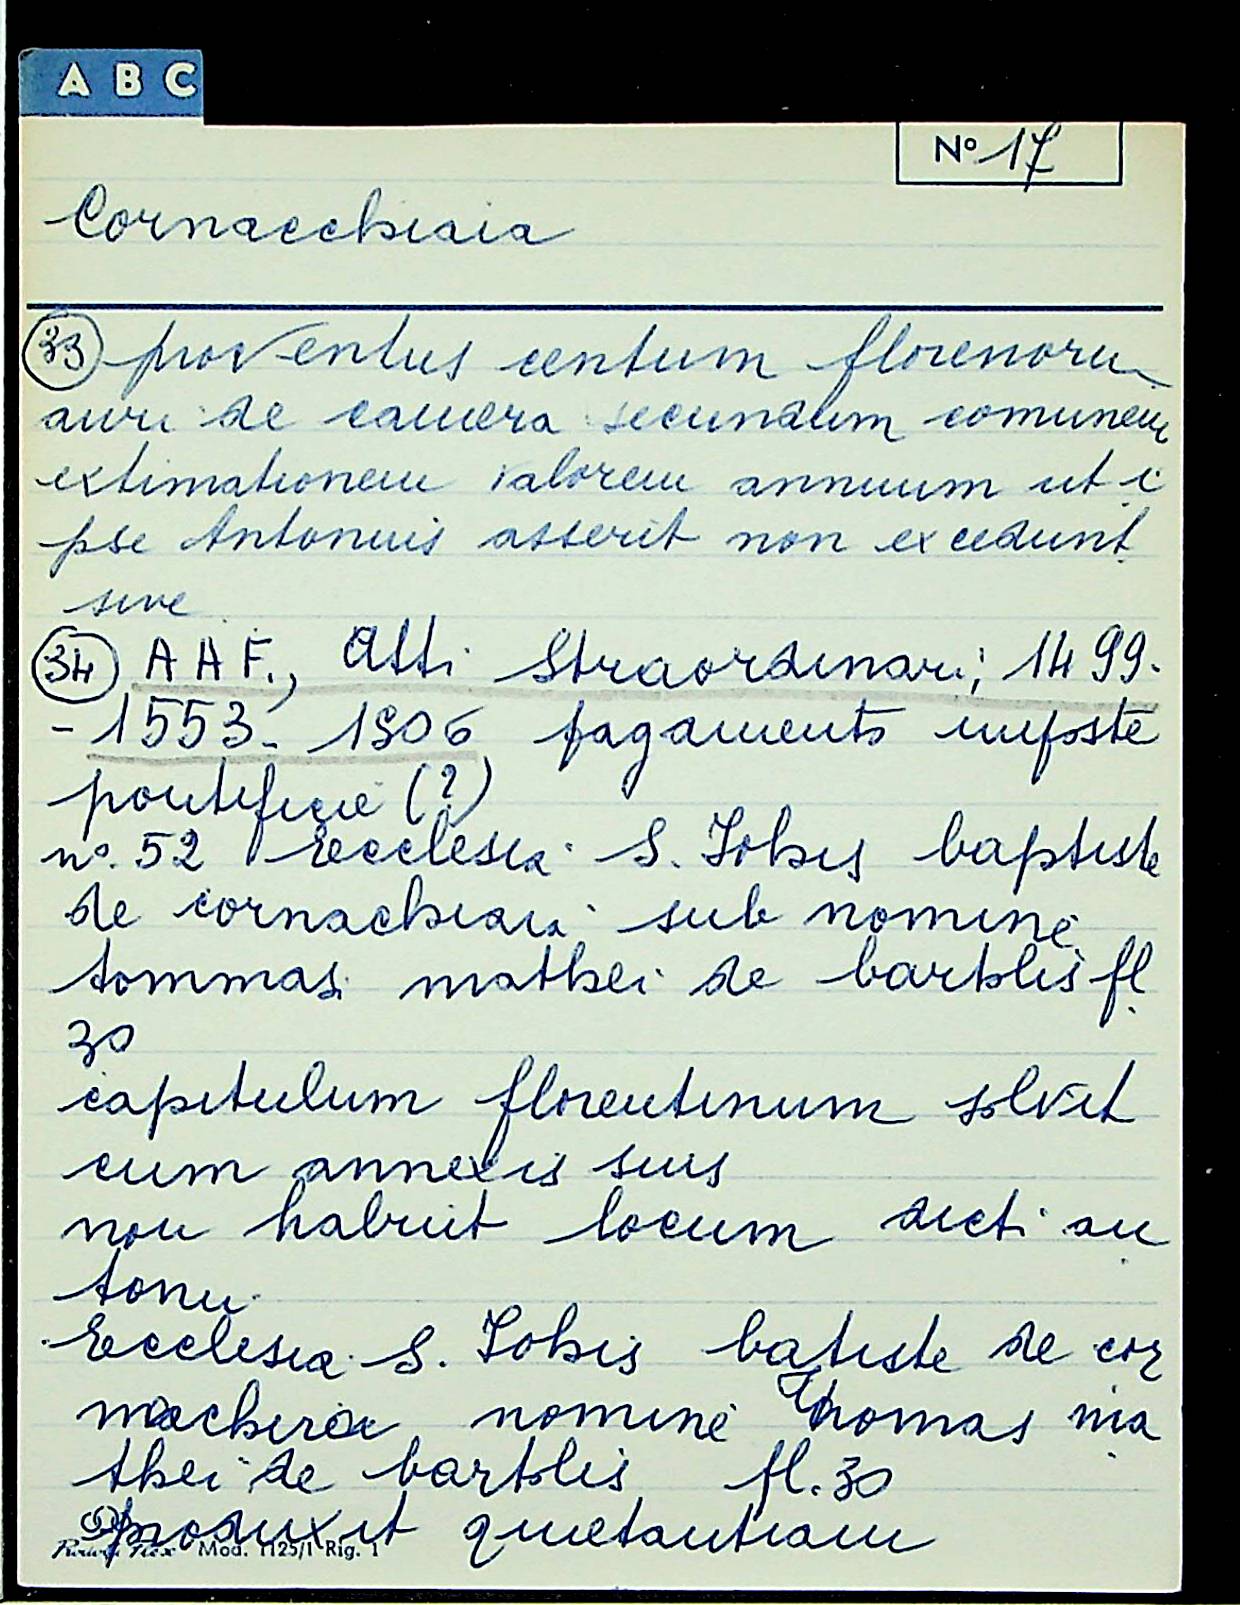 A B C
Nº 17
Cornacchiaia
33 proventus centum florenoru
auri de camera secundum comunem
extimationem valorem annuum ut i
pse Antonius asserit non excedunt
sive
34 A A F., Atti Straordinari; 1499-
- 1553- 1806 pagamento imposte
pontificie (?)
nº. 52 Ecclesia S. Johis baptiste
de cornachiaia sub nomine
tommasi mathei de bartolis fl
30
capitulum florentinum solvit
cum annexis suis
non habuit locum dicti an
tonii
Ecclesia S. Johis batiste de cor
nachiaia nomine Thomas ma
thei de bartolis fl. 30
produxit quietantiam
Mod. 1125/1 Rig. 1